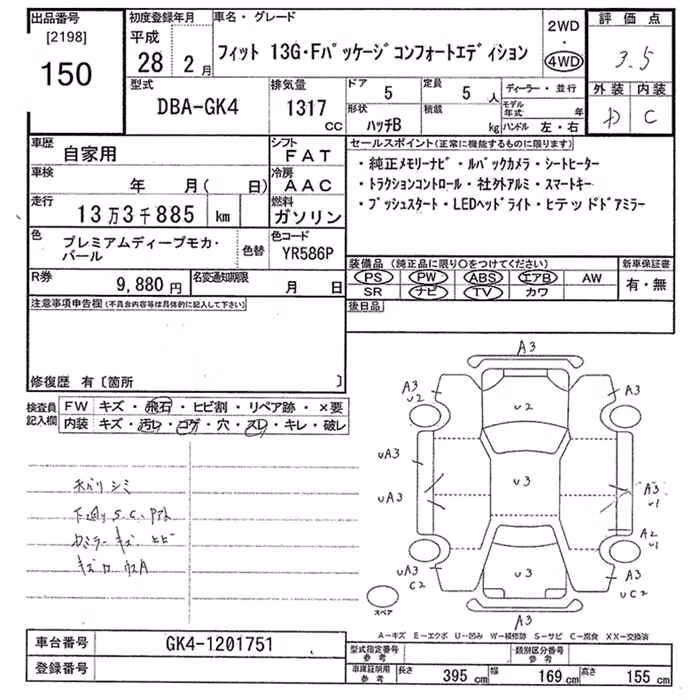 出品番号 初度登録年月 車名・グレード 2WD ・ 4WD 評価点
[2198] 150 平成 28 2月 フィット 13G・Fパッケージコンフォートエディション 3.5
型式 DBA-GK4 排気量 1317 CC ドア 5 定員 5 人 ディーラー・並行 外装 内装
形状 ハッチB 積載 kg モデル年式 年 ハンドル 左・右 C
車歴 自家用 シフト FAT セールスポイント(正常に機能するものに限ります)
車検 年 月( 日) 冷房 AAC ・純正メモリーナビ・ルバックカメラ・シートヒーター
・トラクションコントロール・社外アルミ・スマートキー
走行 13万3千885 km 燃料 ガソリン ・プッシュスタート・LEDヘッドライト・ヒテッドドアミラー
色 プレミアムディープモカ・パール 色替 色コード YR586P
装備品(純正品に限り○をつけてください) 新車保証書
R券 9,880円 名変通知期限 月 日 PS PW ABS エアB AW 有・無
SR ナビ TV カワ
注意事項申告欄(不具合内容等は具体的に記入して下さい) 後日品
修復歴 有〔箇所 〕
検査員記入欄 FW キズ・飛石・ヒビ割・リペア跡・×要
内装 キズ・汚レ・コゲ・穴・スレ・キレ・破レ
A3
A3 U2 U2 A3
UA3 U3 A3 U1
UA3 A2 U1
UA3 C2 U3 A3 UC2
シミ
下廻りS.C.
キズ ヒビ
スペア
A-キズ E-エクボ U-凹み W-補修跡 S-サビ C-腐食 XX-交換済
車台番号 GK4-1201751 型式指定番号 参考 類別区分番号 参考
登録番号 車庫証明用 参考 長さ 395 cm 幅 169 cm 高さ 155 cm